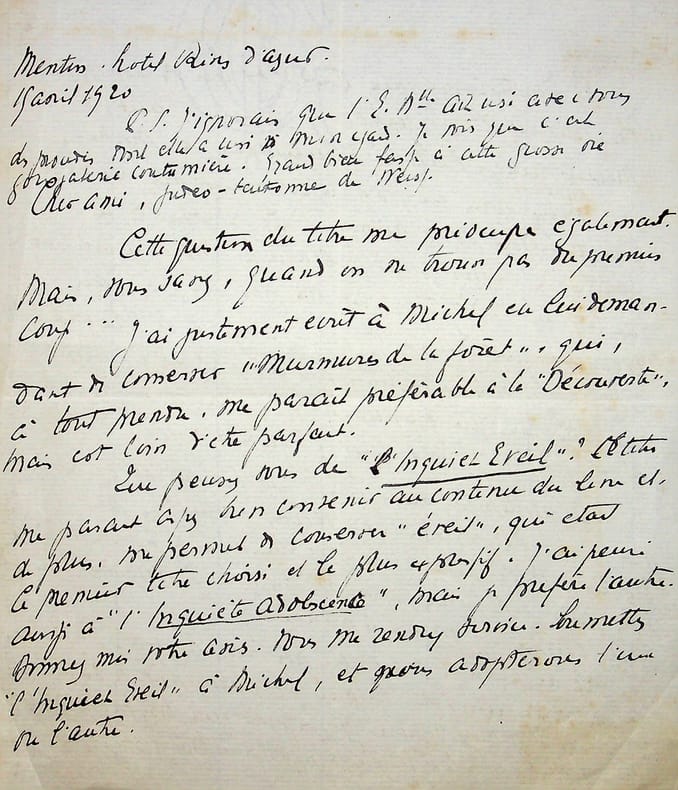 Menton. hotel Rives d'azur.
15 avril 1920
P.S. J'ignorais que l'E. Nlle ait usi avec vous
des procédés dont elle a usi à mon égard. Je vois que c'est
goujaterie coutumière. Grand bien fasse à cette grosse oie
judéo-teutonne de
Cher ami,
Cette question du titre me préoccupe également.
Mais, vous savez, quand on ne trouve pas du premier
coup... J'ai justement écrit à Michel en lui deman-
dant de conserver "Murmures de la forêt", qui,
à tout prendre, me paraît préférable à la "Découverte",
mais est loin d'être parfait.
Que pensez vous de "l'Inquiet Eveil"? Ce titre
me paraît assez bien convenir au contenu du livre et,
de plus, me permet de conserver "éveil", qui était
le premier titre choisi et le plus explosif. J'ai pensé
aussi à "l'Inquiète adolescence", mais je préfère l'autre.
Donnez moi votre avis. Vous me rendrez service. Soumettez
"l'Inquiet Eveil" à Michel, et nous adopterons l'un
ou l'autre.